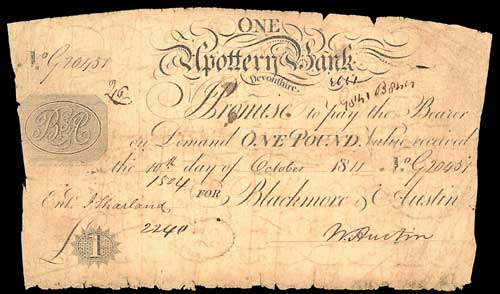 ONE
Upottery Bank
Devonshire.
No G20451
26
I Promise to pay the Bearer
on Demand ONE POUND, Value received
B&A
the 10th day of October 1811 No G20451
1504
FOR Blackmore & Austin
Entd J Sharland
£1
2240
W. Austin